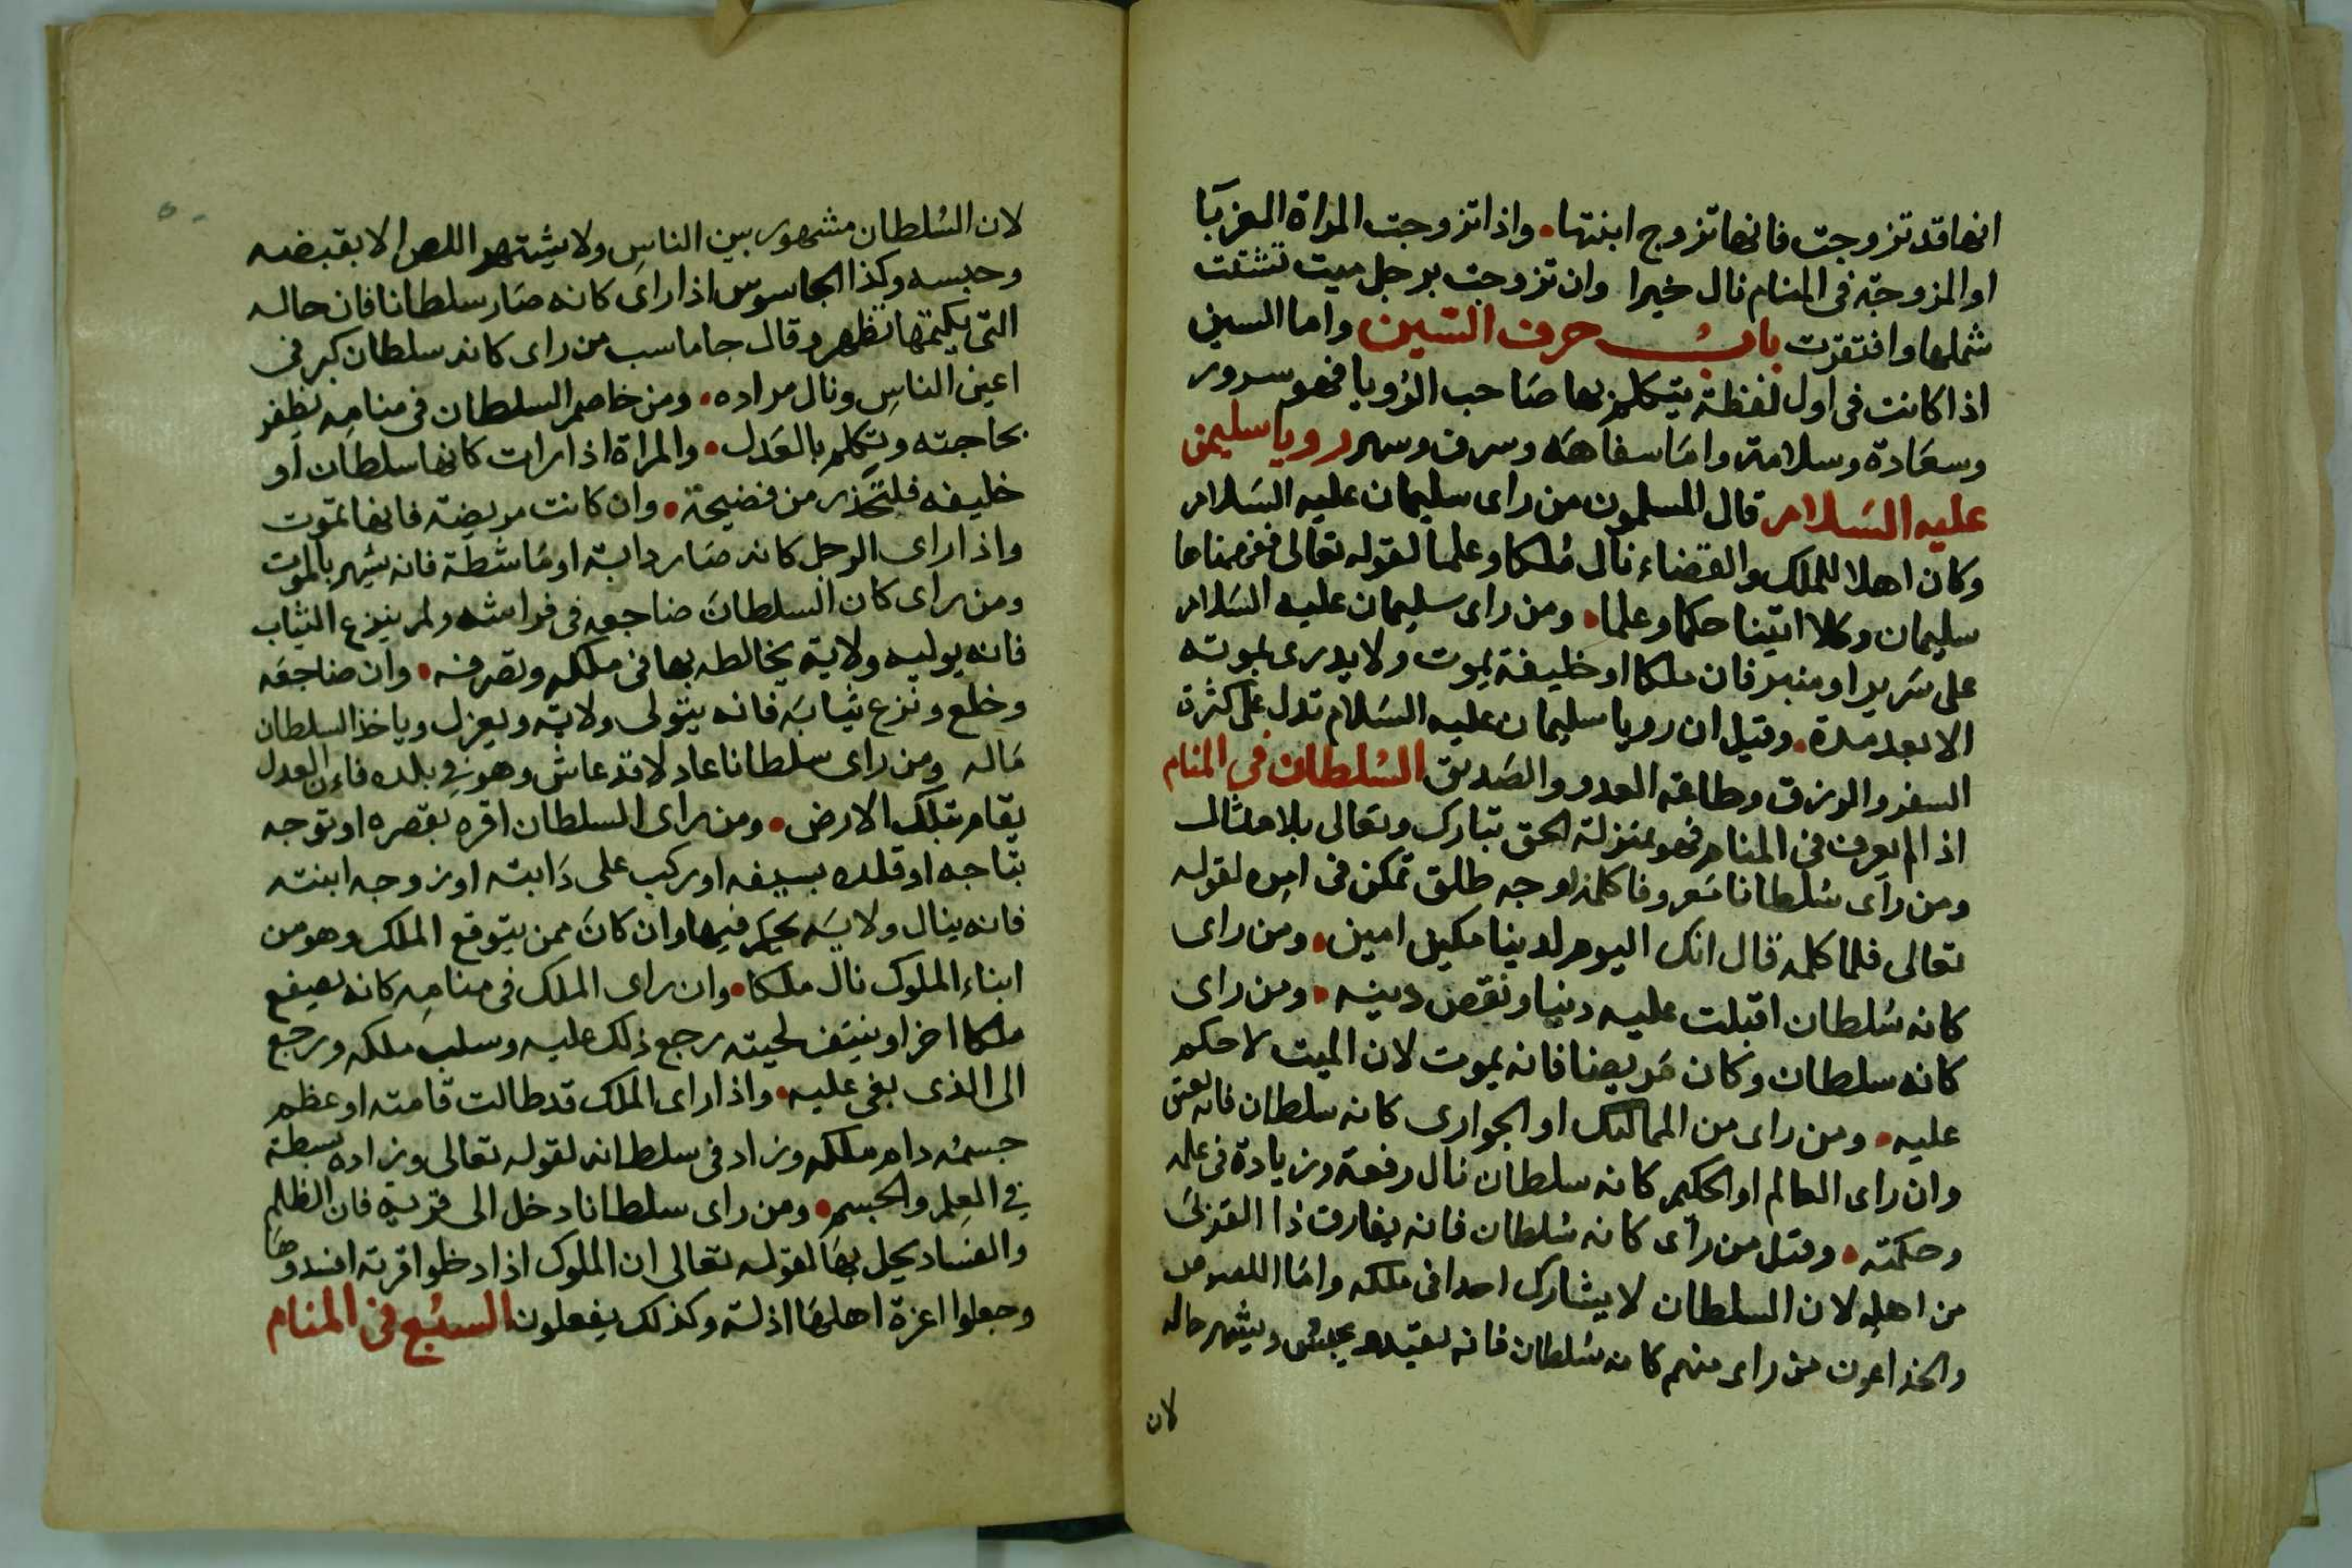 انها قد تزوجت فانها تزوج ابنتها • واذا تزوجت المراة العزبا
او المزوجة فى المنام نال خيرا وان تزوجت برجل ميت تشتت
شملها وافتقرت باب حرف السين واما السين
اذا كانت فى اول لفظة يتكلم بها صاحب الرؤيا فهو سرور
وسعادة وسلامة واما سفاهه وسرف وسهر رويا سليمن
عليه السلام قال المسلمون من راى سليمان عليه السلام
وكان اهلا للملك والقضاء نال ملكا وعلما لقوله تعالى ففهمناها
سليمان وكلا اتينا حكما وعلما • ومن راى سليمان عليه السلام
على سرير او منبر فان ملكا او خليفة يموت ولا يدرى بموته
الا بعد مدة • وقيل ان رويا سليمان عليه السلام تدل على كثرة
السفر والرزق وطاعة العدو والصديق السلطان فى المنام
اذا لم يعرف فى المنام فهو بمنزلة الحق تبارك وتعالى بلا مثال
ومن راى سلطانا معروفا كلمه لوجه طلق تمكن فى امره لقوله
تعالى فلما كلمه قال انك اليوم لدينا مكين امين • ومن راى
كانه سلطان اقبلت عليه دنيا ونقص دينه • ومن راى
كانه سلطان وكان مريضا فانه يموت لان الميت لا حكم
عليه • ومن راى من المماليك او الجوارى كانه سلطان فانه يعتق
وان راى العالم او الحكيم كانه سلطان نال رفعة وزيادة فى علمه
وحكمته • وقيل من راى كانه سلطان فانه يفارق ذا القربى
من اهله لان السلطان لا يشارك احدا فى ملكه واما اللصوص
والخداعون من راى منهم كانه سلطان فانه يقيد ويشهر حاله
لان
لان السلطان مشهور بين الناس ولا يشتهر اللص الا بقبضه
وحبسه وكذا الجاسوس اذا راى كانه صار سلطانا فان حاله
التى يكتمها تظهر وقال جاماسب من راى كانه سلطان كبر فى
اعين الناس ونال مراده • ومن خاصم السلطان فى منامه يظفر
بحاجته وتكلم بالعدل • والمراة اذا رات كانها سلطان او
خليفه فلتحذر من فضيحة • وان كانت مريضة فانها تموت
واذا راى الرجل كانه صار داية او ماشطة فانه يشهر بالموت
ومن راى كان السلطان ضاجعه فى فراشه ولم ينزع الثياب
فانه يوليه ولاية يخالطه بها فى ملكه وتصرفه • وان ضاجعه
وخلع ونزع ثيابه فانه يتولى ولاية ويعزل وياخذ السلطان
ماله ومن راى سلطانا عادلا قد عاش وهو فى بلده فان العدل
يقام بتلك الارض • ومن راى السلطان اقره بقصره او توجه
بتاجه او قلده بسيفه او ركب على دابته او زوجه ابنته
فانه ينال ولاية يحكم فيها وان كان ممن يتوقع الملك وهو من
ابناء الملوك نال ملكا • وان راى الملك فى منامه كانه يصفع
ملكا اخر او ينتف لحيته رجع ذلك عليه وسلب ملكه ورجع
الى الذى بغى عليه • واذا راى الملك قد طالت قامته او عظم
جسمه دام ملكه وزاد فى سلطانه لقوله تعالى وزاده بسطة
فى العلم والجسم • ومن راى سلطانا دخل الى قرية فان الظلم
والفساد يحل بها لقوله تعالى ان الملوك اذا دخلوا قرية افسدوها
وجعلوا اعزة اهلها اذلة وكذلك يفعلون السبع فى المنام